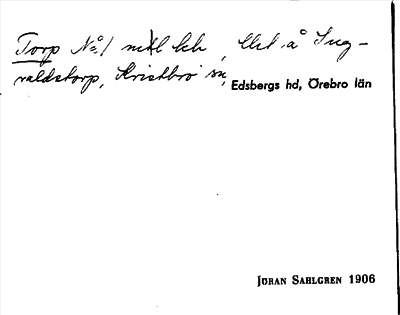 Torp No 1 mtl lch, Ust. å Ing-
valdstorp, Kristbro sn,
Edsbergs hd, Örebro län
JÖRAN SAHLGREN 1906